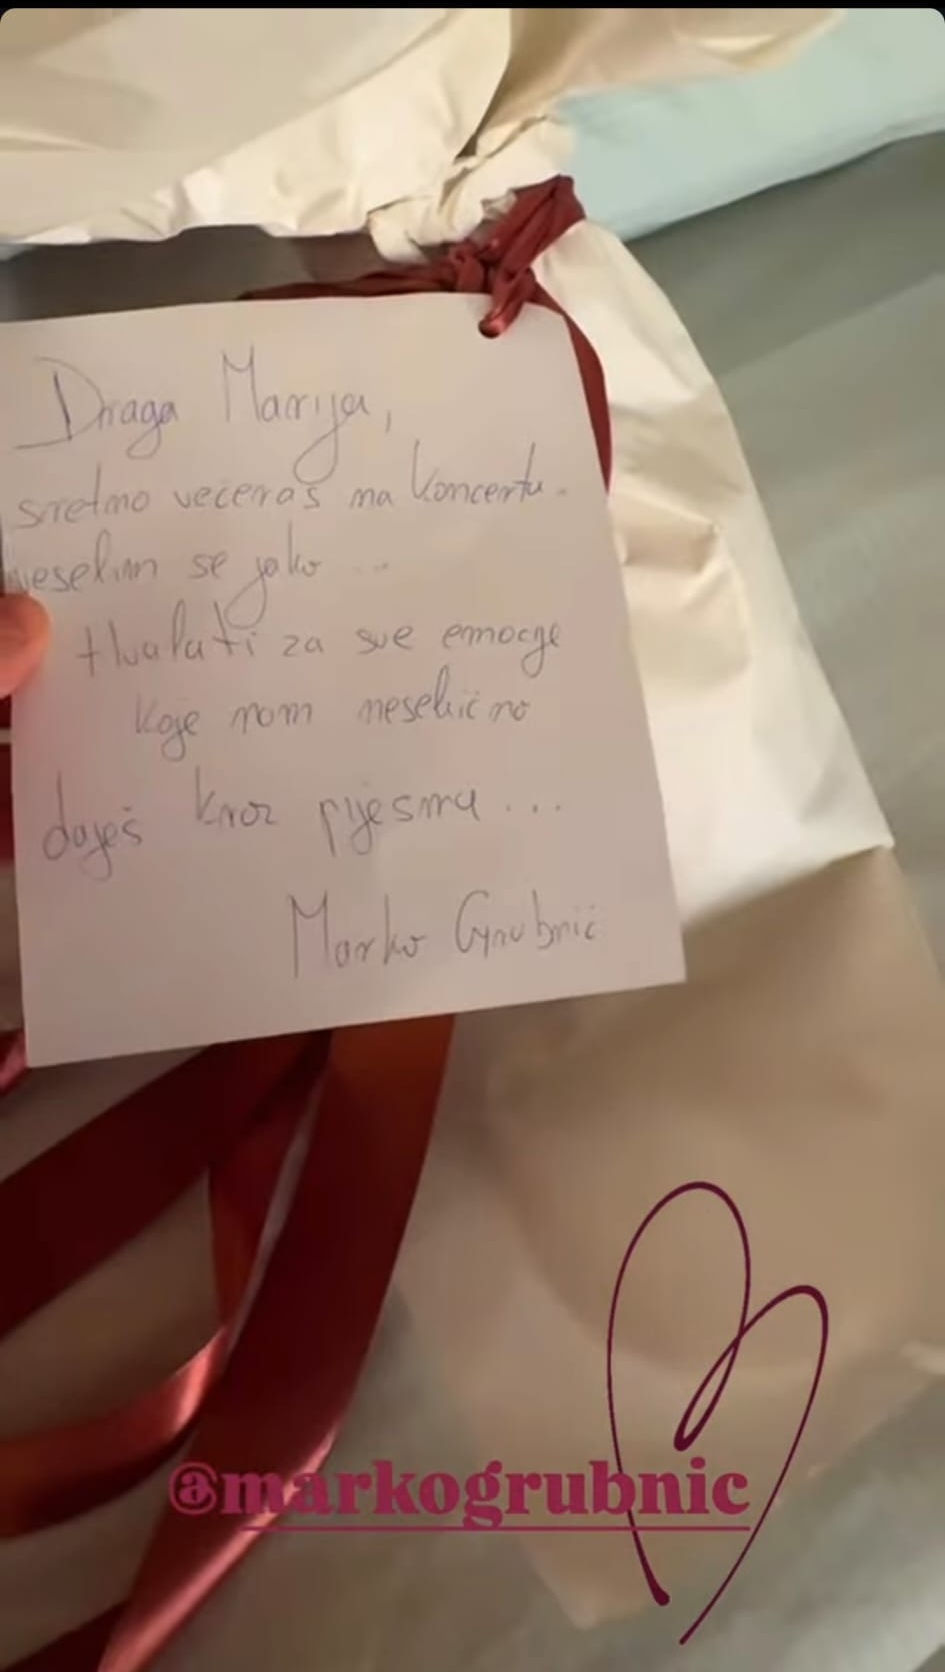 Draga Marija,
sretno večeras na koncertu.
veselim se jako ...
Hvala ti za sve emocije
koje nam nesebično
daješ kroz pjesmu ...
Marko Grubnić
@markogrubnic